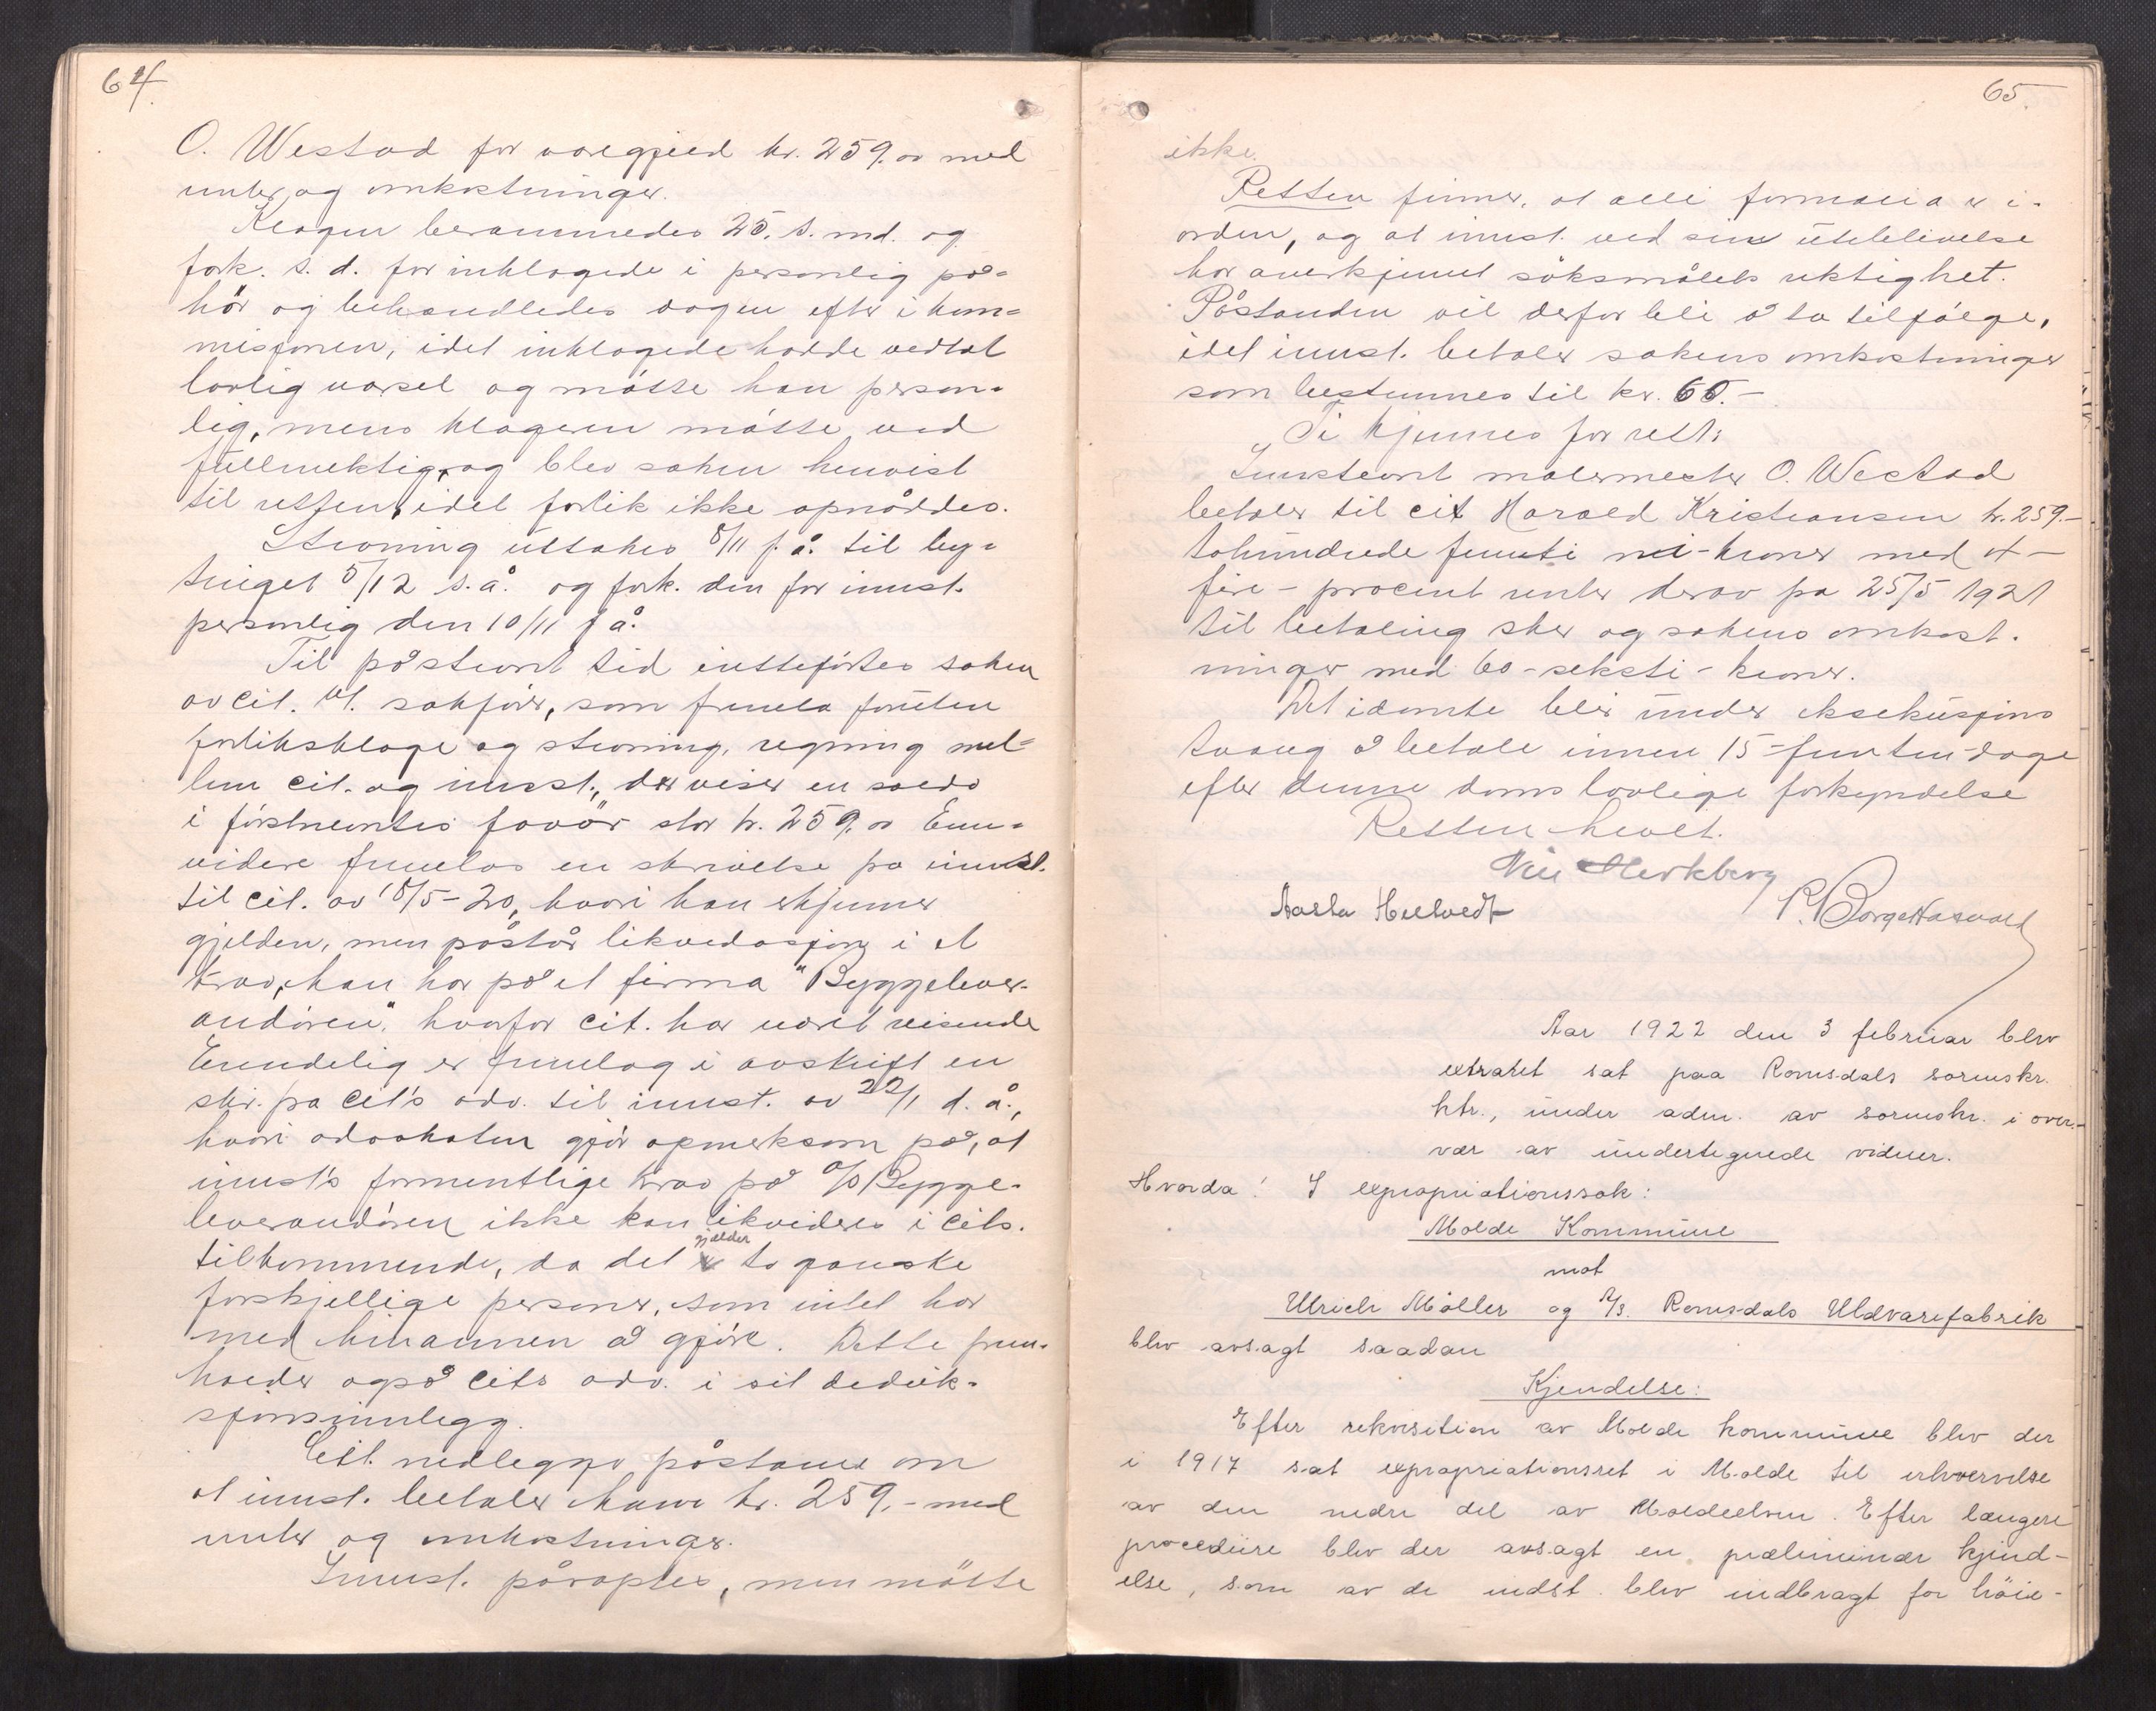 64.
O. Westad for varegjeld kr. 259.00 med
renter og omkostninger.
Klagen berammedes 25. s. md. og
fork. s. d. for inklagede i personlig på-
hör og behandledes dagen efter i kom-
misjonen, idet inklagede hadde vedtat
lovlig varsel og mötte han person-
lig, mens klageren mötte ved
fullmektig, og blev saken henvist
til retten, idet forlik ikke opnåddes.
Stevning uttokes 8/11 f. å. til by-
tinget 5/12 s. å. og fork. den for innst.
personlig den 10/11 f å.
Til påstevnt tid inkteförtes saken
av cit. v. sakförer, som fremla foruten
forliksklage og stevning, regning mel-
lem cit. og innst., der viser en saldo
i förstnevntes favör stor kr. 259.00 Enn-
videre fremlas en skrivelse fra innst.
til cit. av 18/5-20, hvori han erkjenner
gjelden, men påstår likvidasjon i et
krav, han har på et firma "Byggelever-
andören", hvorfor cit. har været reisende
Enndelig er fremlag i avskrift en
skr. fra cit's adv. til innst. av 22/1 d. å.,
hvori advokaten gjör opmerksom på, at
innst's formentlige krav på a/s Bygge-
leverandören ikke kan likvideres i cits.
tilkommende, da det gjelder to ganske
forskjellige personer, som intet har
med hinannen å gjöre. Dette frem-
holder også cits adv. i sit deduk-
sjonsinnlegg.
Cit. nedlegger påstand om
at innst. betaler ham kr. 259,- med
renter og omkostninger.
Innst. påroptes, men mötte
65.
ikke.
Retten finner, at alle formalia er i-
orden, og at innst. ved sin uteblivelse
har anerkjennet söksmålets riktighet.
Påstanden vil derfor bli å ta tilfölge,
idet innst. betaler sakens omkostninger
som bestemmes til kr. 60.-
Ti kjennes for rett:
Innstevnt malermester O. Westad
betaler til cit Harald Kristiansen kr. 259.-
tohundrede femti ni-kroner med 4-
fire - procent renter derav fra 25/5 1921
til betaling sker og sakens omkost.
ninger med 60-seksti-kroner.
Det idømte blir under eksekusjons
tvang å betale innen 15-femten-dage
efter denne doms lovlige forkyndelse
Retten hevet.
Aasta Heltvedt
Aar 1922 den 3 februar blev
extraret sat paa Romsdals sorenskr.
ktr., under adm. av sorenskr. i over-
vær av undertegnede vidner.
Hvorda! I expropriationssak:
Molde Kommune
mot
Ulrich Möller og A/S. Romsdals Uldvarefabrik
blev avsagt saadan
Kjendelse:
Efter rekvisition av Molde kommune blev der
i 1917 sat expropriationsret i Molde til erhvervelse
av den nedre del av Moldeelven. Efter længere
procedure blev der avsagt en præliminær kjend-
else, som av de indst. blev indbragt for höie-